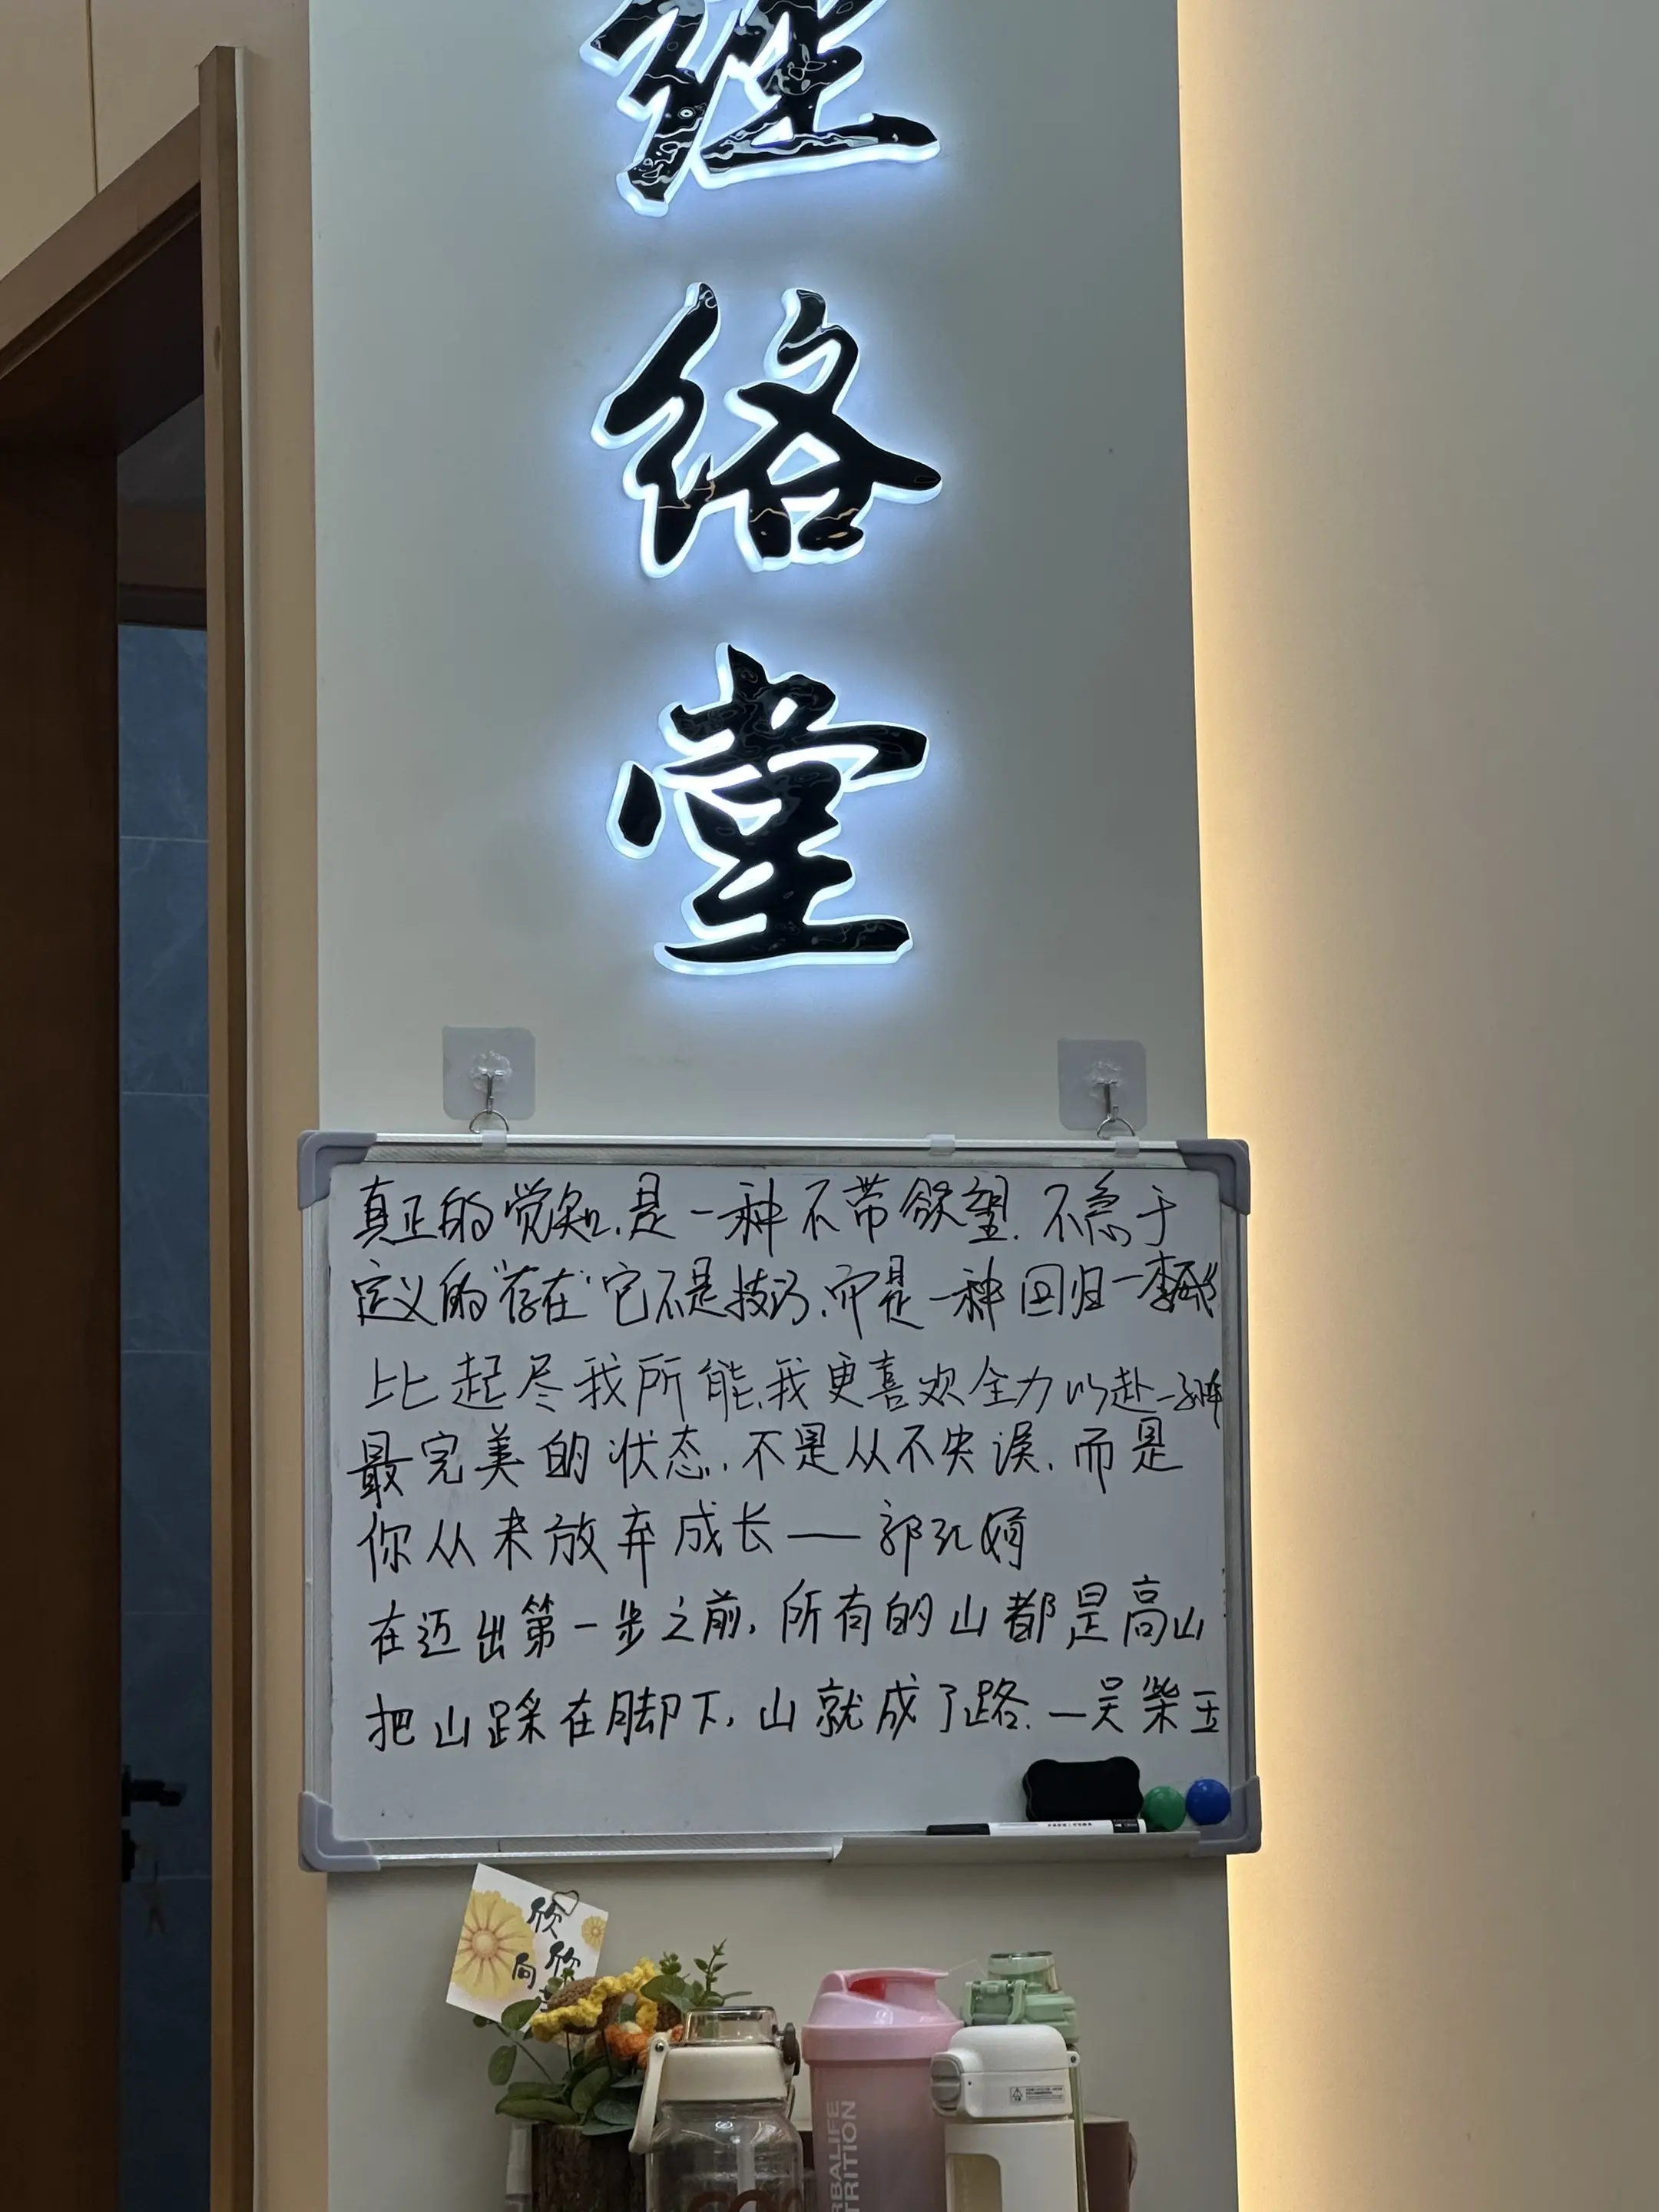 经
络
堂
真正的觉知,是一种不带欲望.不急于
定义的"存在"它不是技巧,而是一种回归一李
比起尽我所能,我更喜欢全力以赴一
最完美的状态,不是从不失误,而是
你从未放弃成长——郭孔娟
在迈出第一步之前,所有的山都是高山
把山踩在脚下,山就成了路.一吴紫玉
欣
欣
向
RBALIFE
TRITION